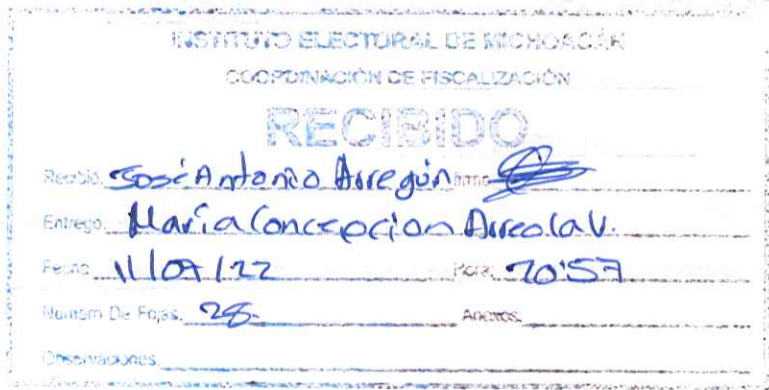 INSTITUTO ELECTORAL DE MICHOACÁN
COORDINACIÓN DE FISCALIZACIÓN
RECIBIDO
Recibió: José Antonio Arreguín Firma
Entregó: María Concepcion Arreola V.
Fecha: 11/07/22 Hora:
Numero De Fojas: 28. Anexos:
Observaciones: